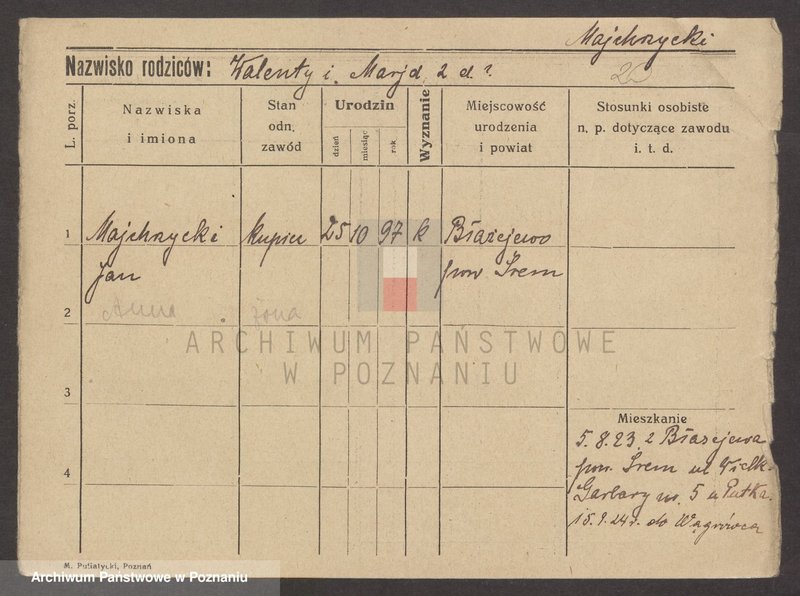 Majchrzycki
Nazwisko rodziców: Walenty i Marja z d.?
L. porz.
Nazwiska
i imiona
Stan
odn.
zawód
Urodzin
dzień
miesiąc
rok
Wyznanie
Miejscowość
urodzenia
i powiat
Stosunki osobiste
n. p. dotyczące zawodu
i. t. d.
1 Majchrzycki kupiec 25 10 97 k Błażejewo
Jan pow Śrem
2 Anna żona
ARCHIWUM PAŃSTWOWE
W POZNANIU
3
Mieszkanie
5.8.23 z Błażejewa
4 pow. Śrem ul Wielk.
Garbary nr. 5 u
15.9.24 r. do Wągrówca
M. Putiatycki, Poznań
Archiwum Państwowe w Poznaniu